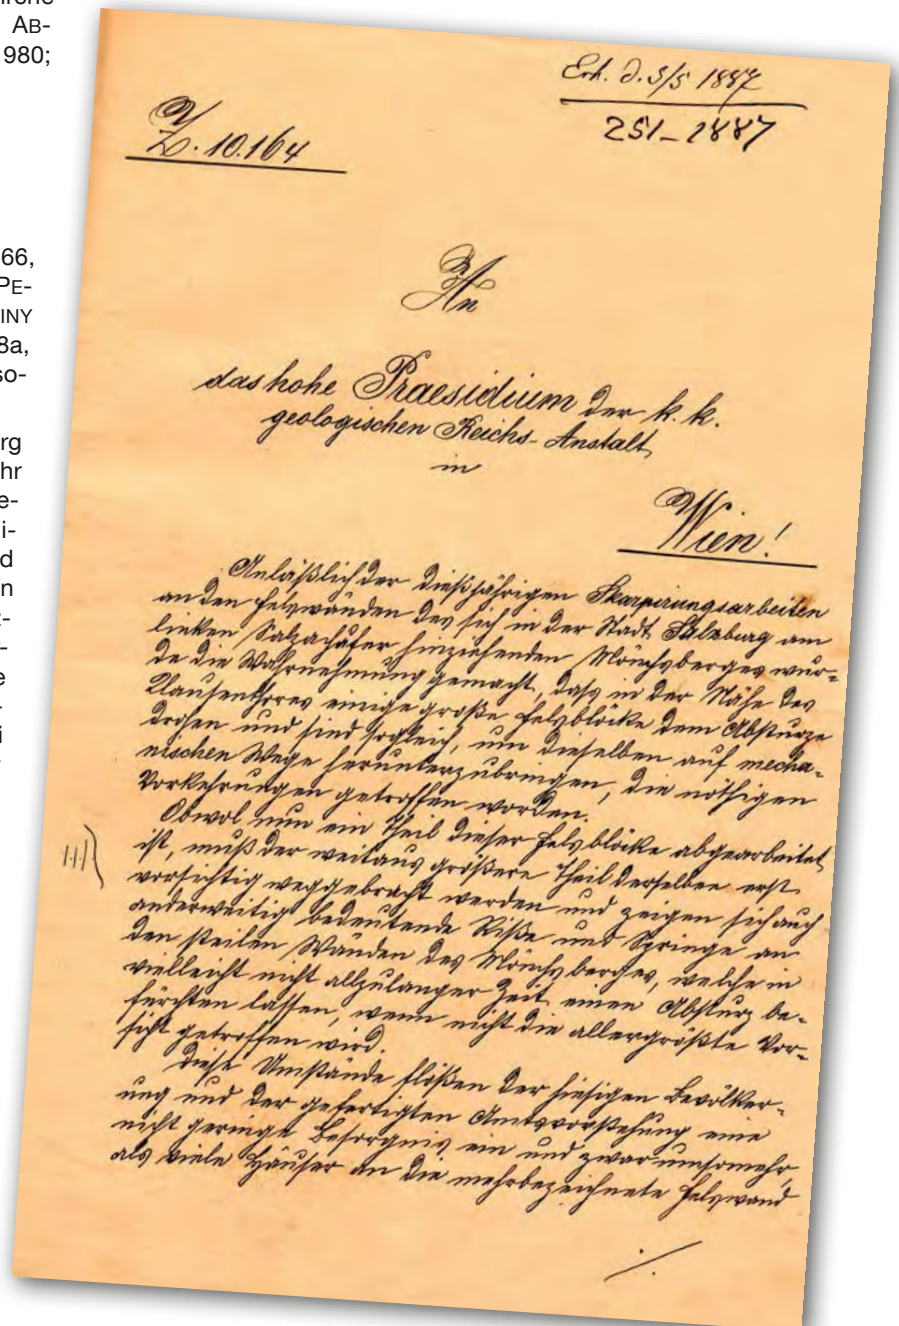 AB-
980;
66,
PE-
INY
8a,
so-
rg
hr
e-
i-
d
n
-
-
e
-
i
Erh. d. 5/5 1887
251-1887
Z. 10.164
An
das hohe Praesidium der k. k.
geologischen Reichs-Anstalt
in
Wien!
Anläßlich der dießjährigen Skarpirungsarbeiten
an den Felswänden des sich in der Stadt Salzburg am
linken Salzachufer hinziehenden Mönchsberges wur-
de die Wahrnehmung gemacht, dass in der Nähe des
Klausenthores einige große Felsblöcke dem Absturze
drohen und sind sogleich, um dieselben auf mecha-
nischen Wege herunterzubringen, die nöthigen
Vorkehrungen getroffen worden.
Obwol nun ein Theil dieser Felsblöcke abgearbeitet
ist, muß der weitaus größere Theil derselben erst
vorsichtig weggebracht werden und zeigen sich auch
anderweitig bedeutende Riße und Sprünge an
den steilen Wänden des Mönchsberges, welche in
vielleicht nicht allzulanger Zeit einen Absturz be-
fürchten lassen, wenn nicht die allergrößte Vor-
sicht getroffen wird.
Diese Umstände flößen der hiesigen Bevölker-
ung und der gefertigten Amtsvorstehung eine
nicht geringe Besorgnis ein und zwar umsomehr,
als viele Häuser an die mehrbezeichnete Felswand
./.